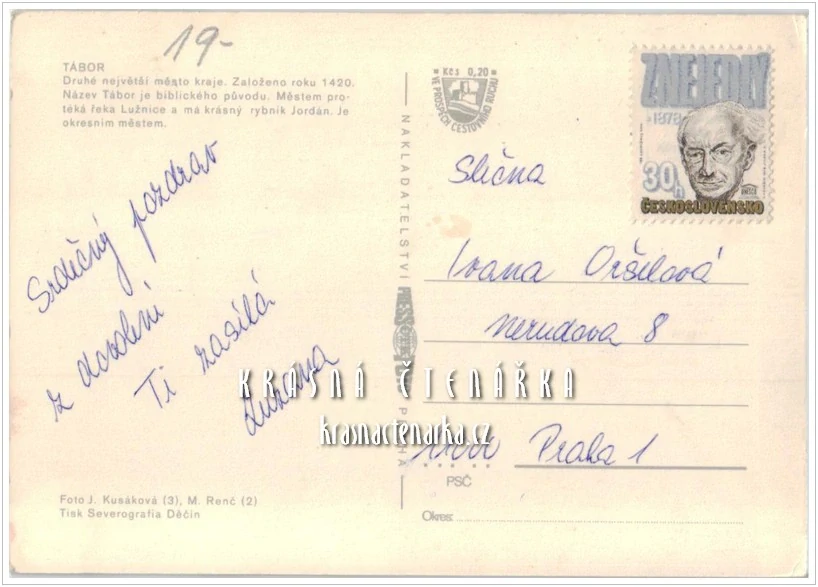 19-
TÁBOR
Druhé největší město kraje. Založeno roku 1420.
Název Tábor je biblického původu. Městem pro-
téká řeka Lužnice a má krásný rybník Jordán. Je
okresním městem.
Srdečný pozdrav
z dovolení
Ti zasílá
Zuzana
Foto J. Kusáková (3), M. Renč (2)
Tisk Severografia Děčín
NAKLADATELSTVÍ
PRAHA
Kčs 0,20
VE PROSPĚCH CESTOVNÍHO RUCHU
Z NEJEDLÝ
1878
30h
ČESKOSLOVENSKO
Slečna
Ivana Oršilová
Nerudova 8
11000 Praha 1
PSČ
Okres:
KRÁSNÁ ČTENÁŘKA
krasnactenarka.cz